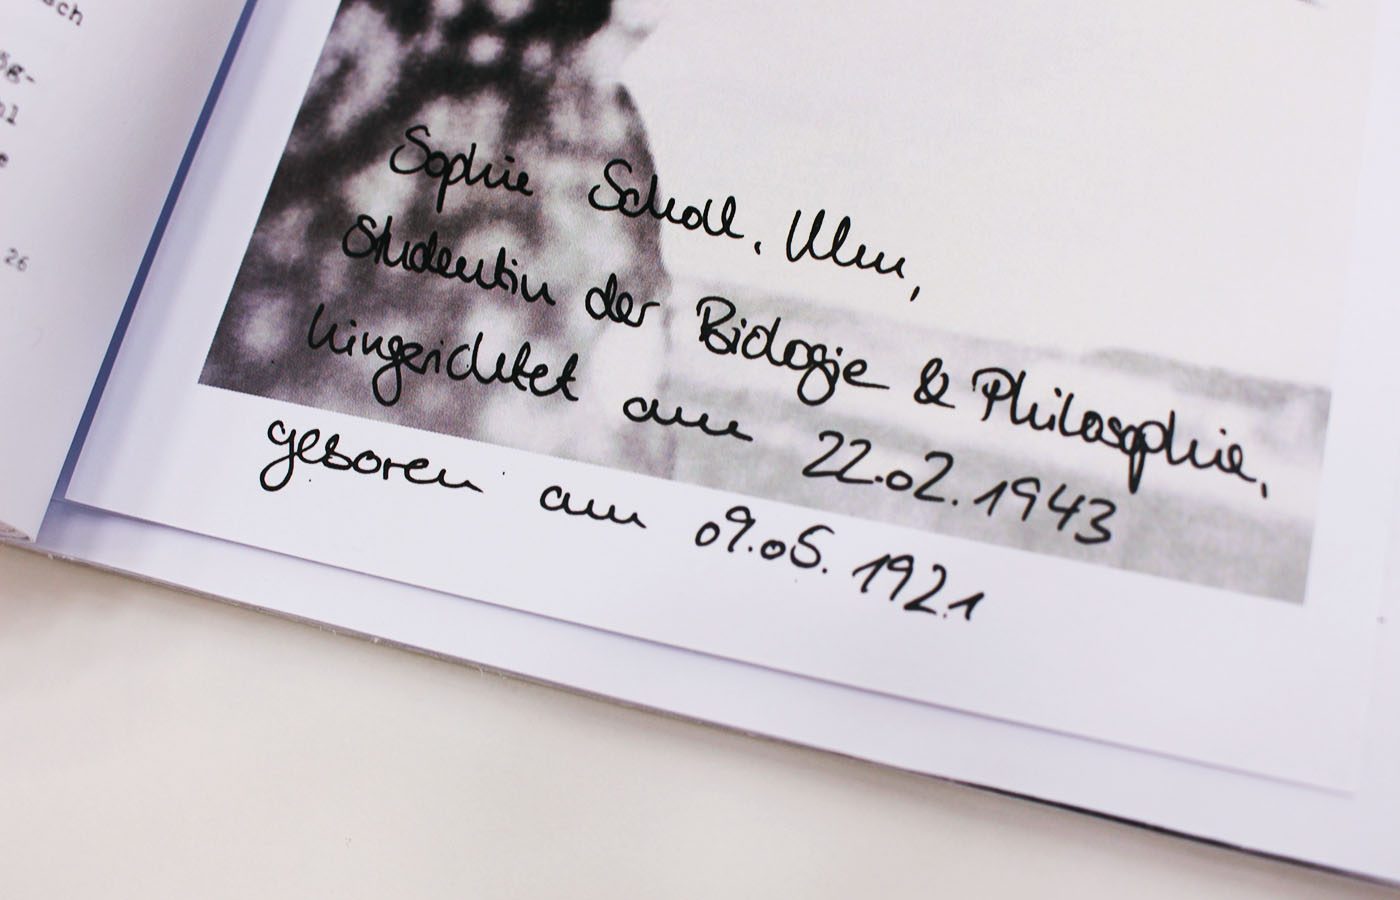 sch
ög-
hl
e
26
Sophie Scholl, Ulm,
Studentin der Biologie & Philosophie,
hingerichtet am 22.02.1943
geboren am 09.05.1921